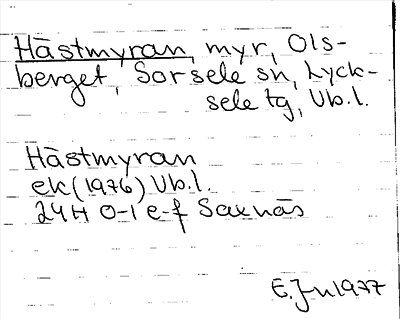 Hästmyran, myr, Ols-
berget, Sorsele sn, Lyck-
sele tg, Vb.l.
Hästmyran
ek (1976) Vb.l.
24H 0-1 e-f Saxnäs
E. Jn 1977